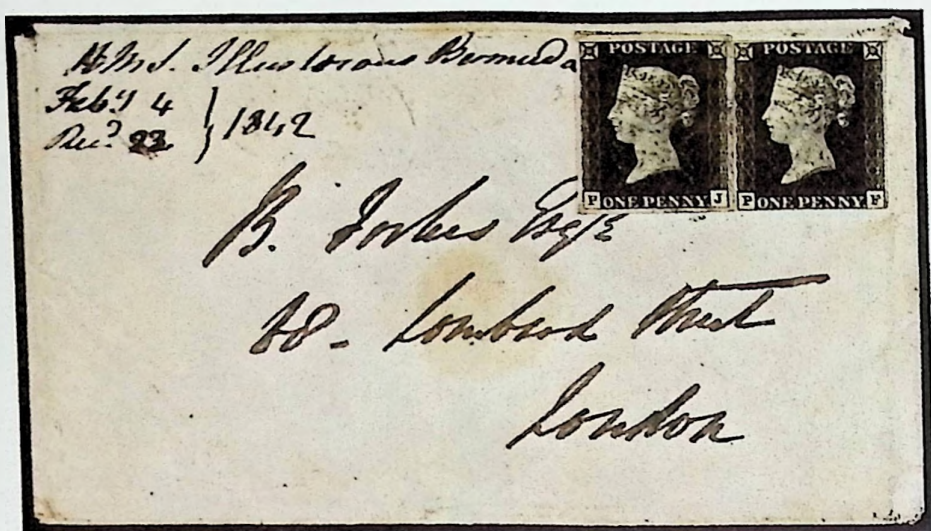 H.M.S. Illustrious Bermuda
Feby 4
Recd 22 } 1842
POSTAGE
P ONE PENNY J
POSTAGE
P ONE PENNY F
B. Forbes Esqre
Lombard Street
London